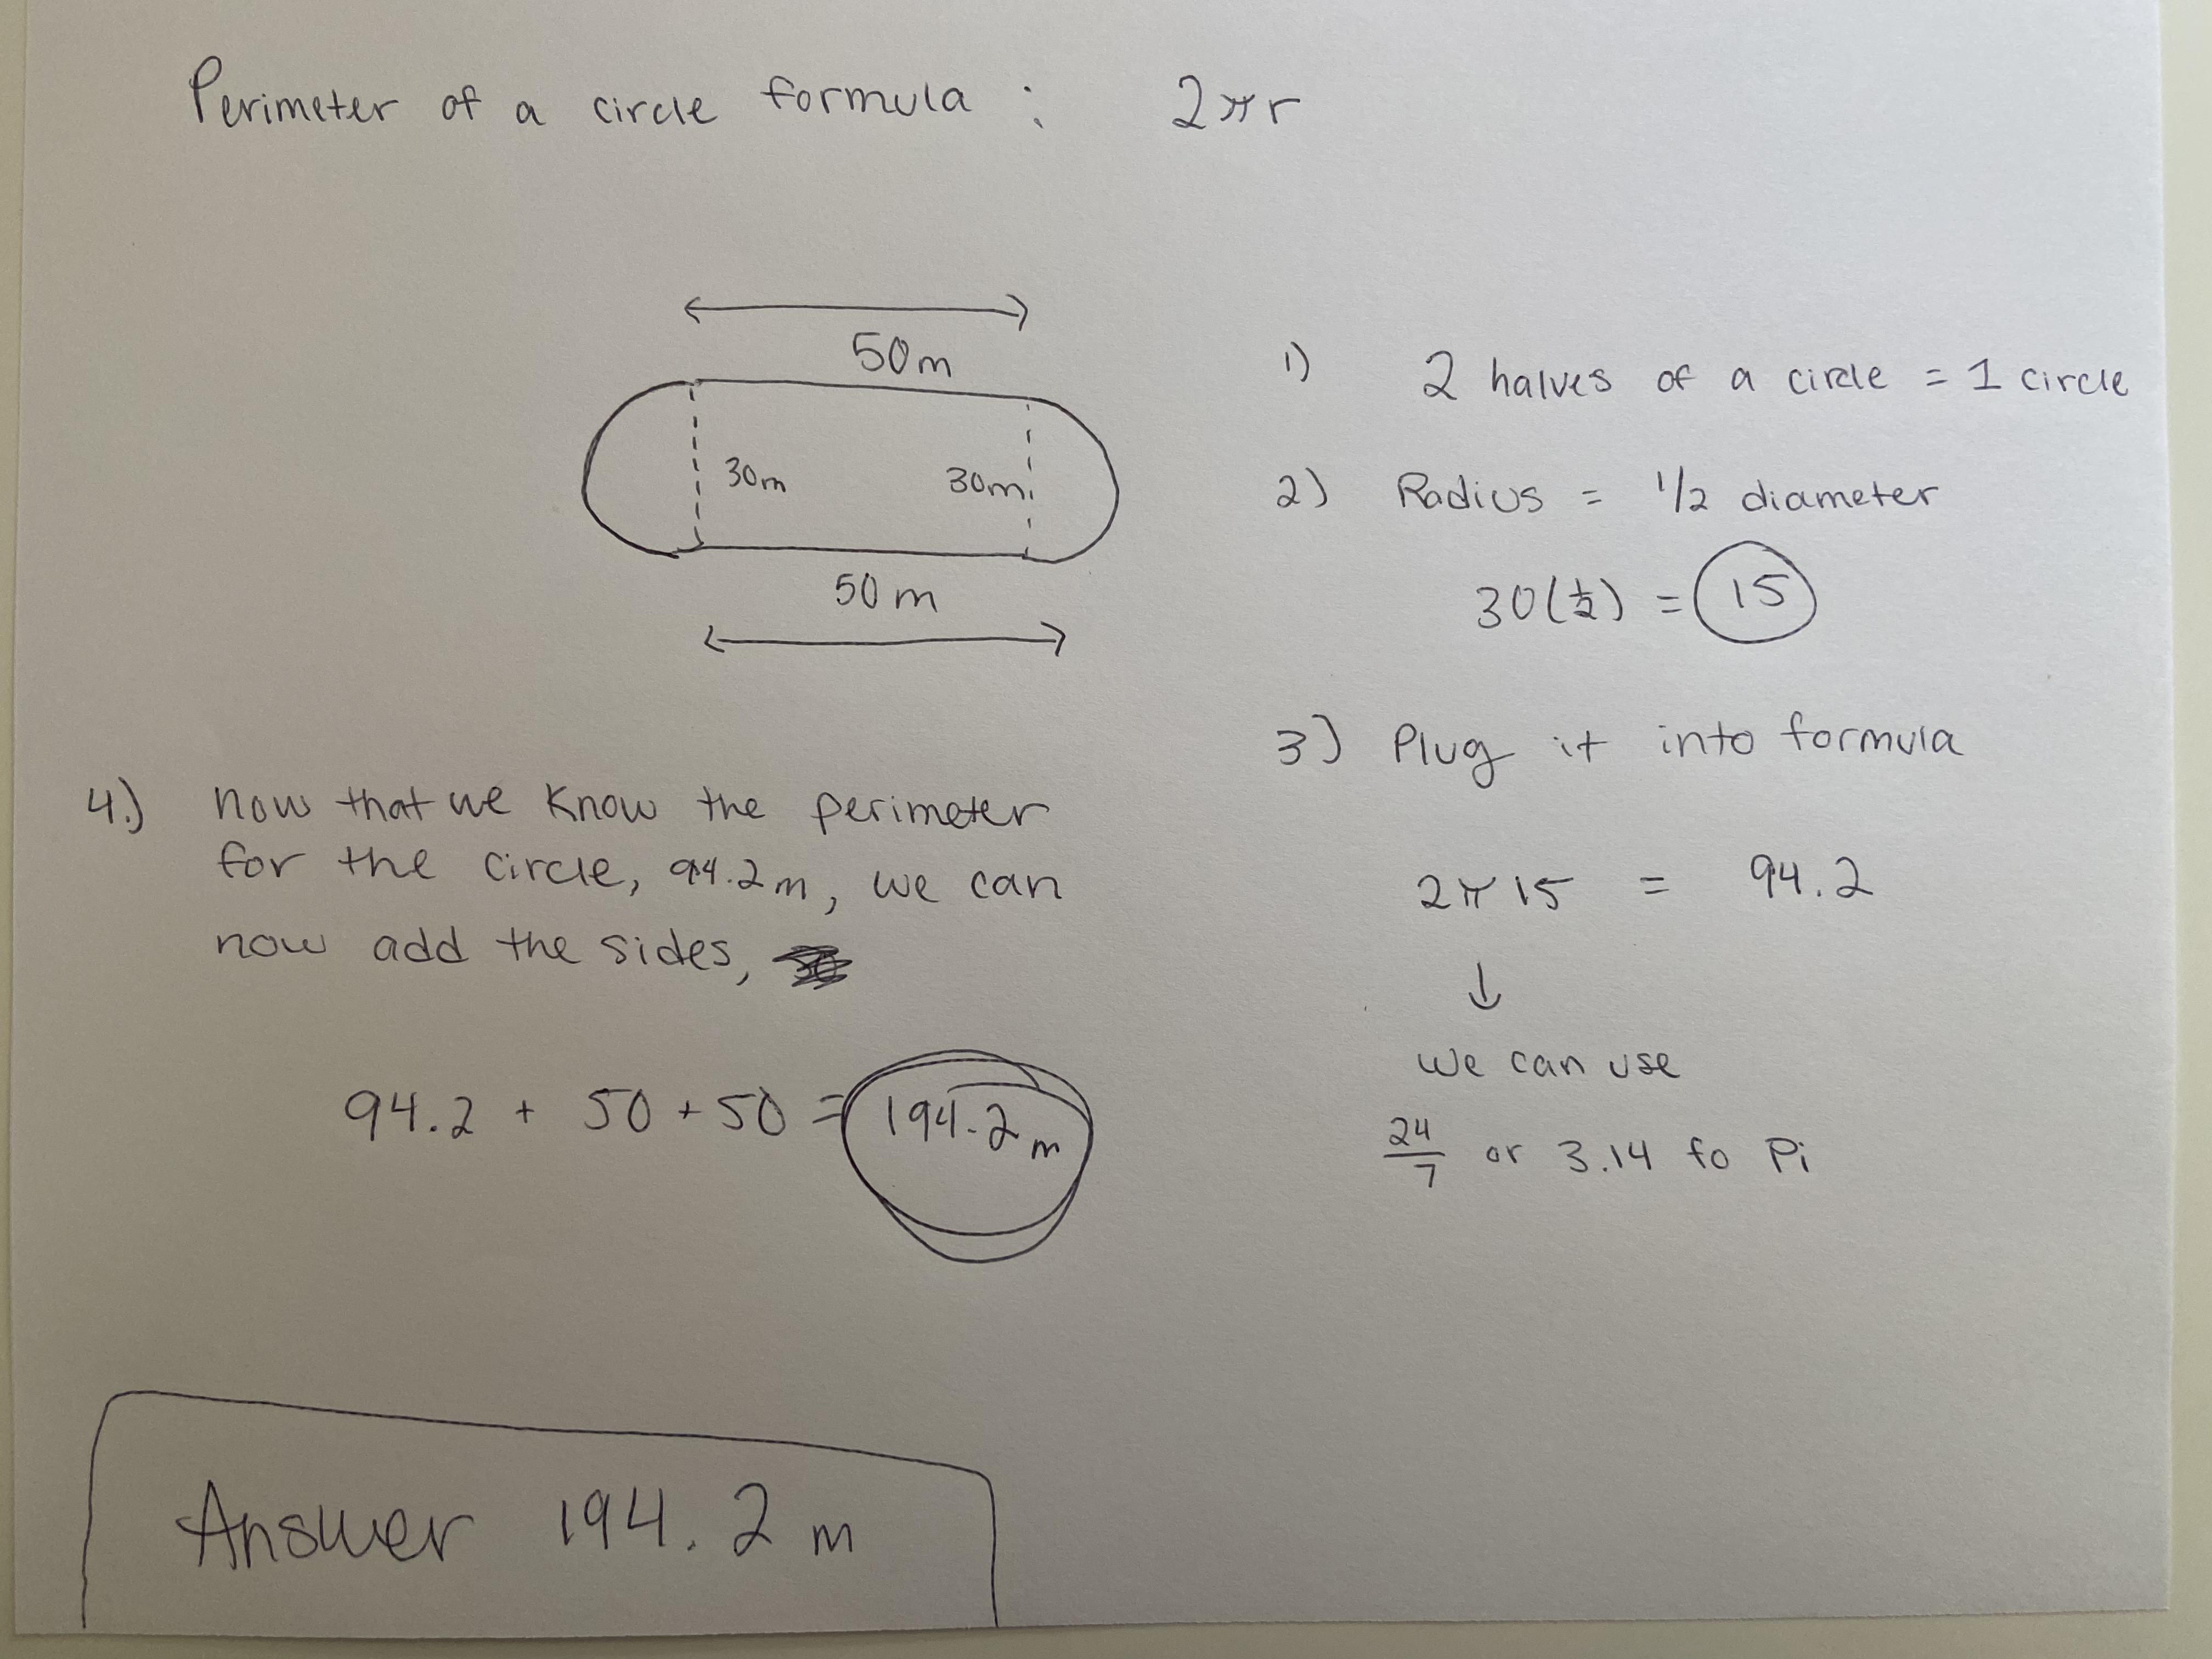 Perimeter of a circle formula : 2πr
50m
30m 30m
50m
1) 2 halves of a circle = 1 circle
2) Radius = 1/2 diameter
30(½) = 15
3) Plug it into formula
2π15 = 94.2
↓
we can use
24/7 or 3.14 fo Pi
4.) now that we know the perimeter
for the circle, 94.2m, we can
now add the sides,
94.2 + 50 + 50 = 194.2m
Answer 194.2 m